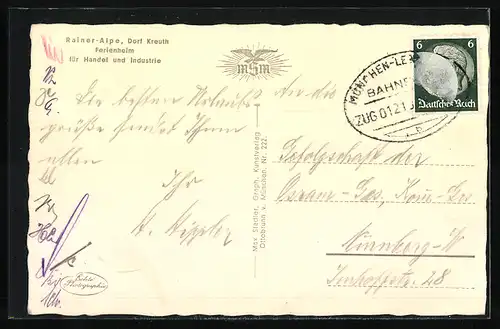 Rainer-Alpe, Dorf Kreuth
Ferienheim
für Handel und Industrie
mSm
MÜNCHEN-LE
BAHNP
ZUG 0121
6 6
Deutsches Reich
Die besten Urlaubs-
grüße sendet Ihnen
allen
Ihr
Max Stadler, Graph. Kunstverlag
Ottobrunn v. München, Nr. 222.
An die
Gefolgschaft der
Osram-Ges, Kom.-Ges
Nürnberg-W
28
Echte
Photographie